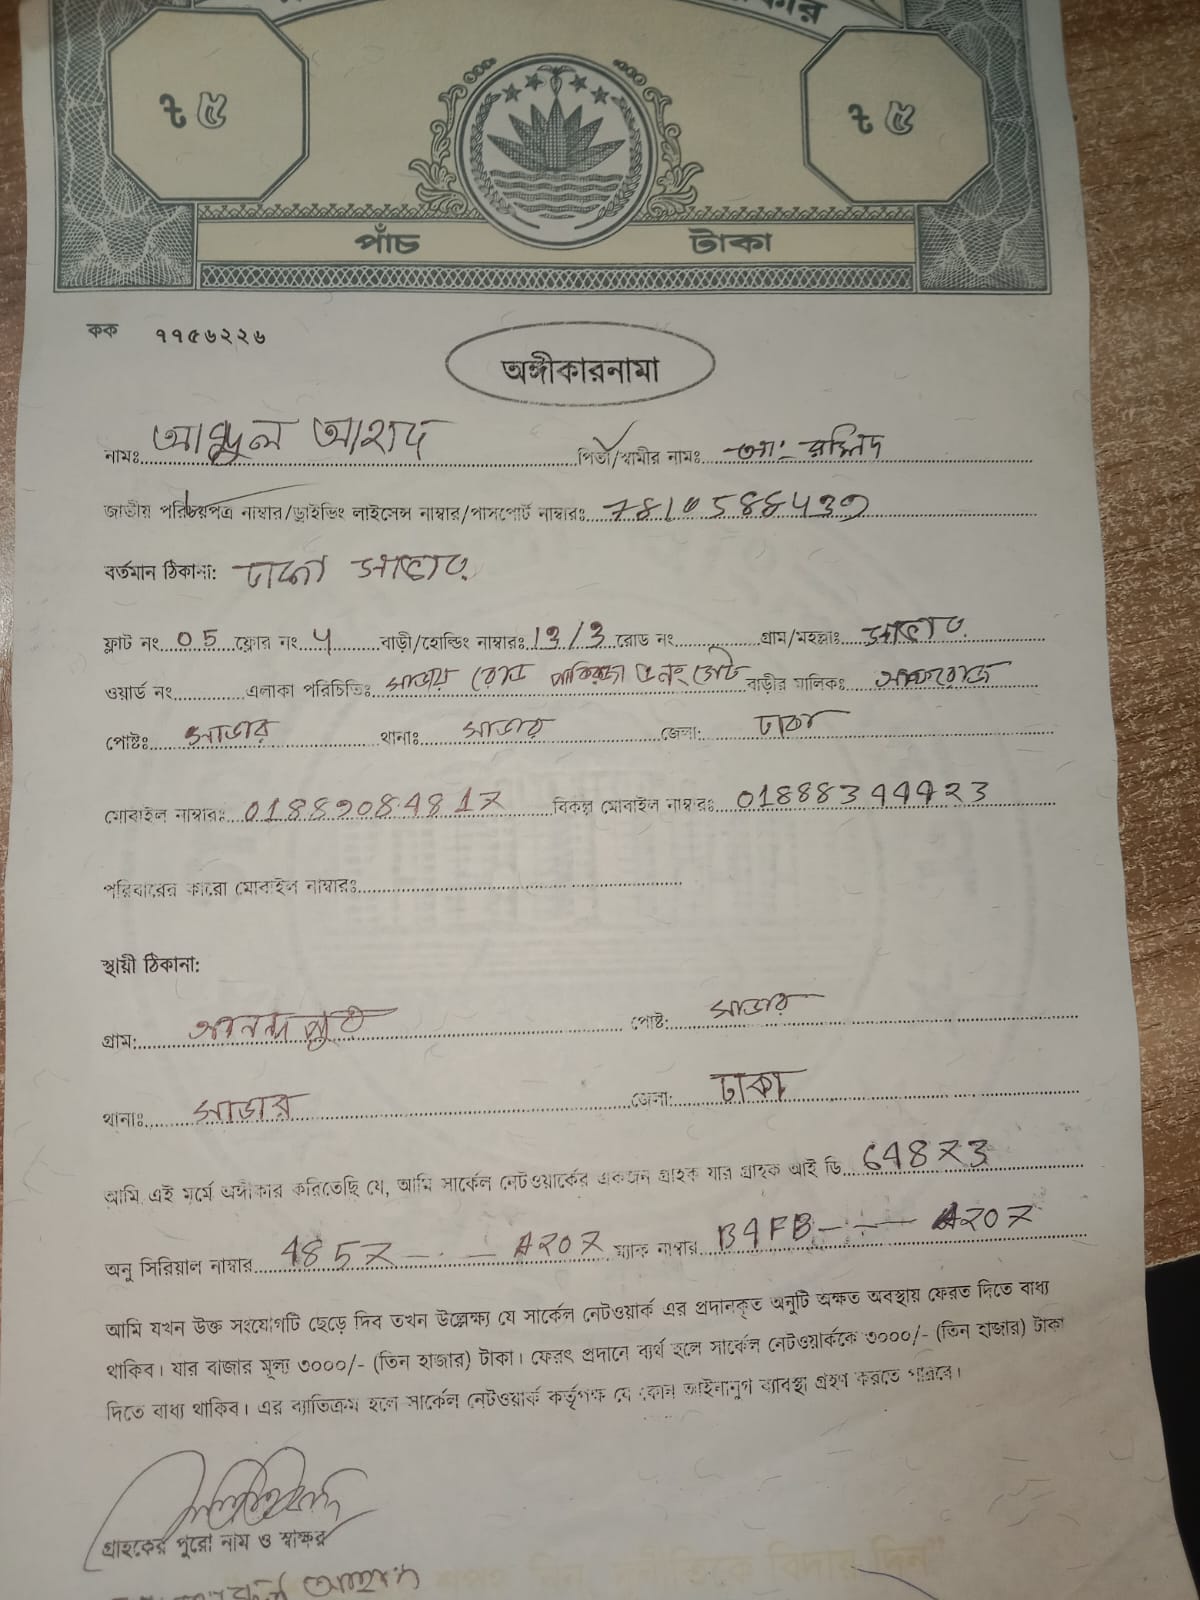 ৳ ৫ ৳ ৫
পাঁচ টাকা
কক ৭৭৫৬২২৬
অঙ্গীকারনামা
নামঃ আব্দুল আহাদ পিতা/স্বামীর নামঃ আঃ রশিদ
জাতীয় পরিচয়পত্র নাম্বার/ড্রাইভিং লাইসেন্স নাম্বার/পাসপোর্ট নাম্বারঃ
বর্তমান ঠিকানা: ঢাকা সাভার
ফ্লাট নং 05 ফ্লোর নং 4 বাড়ী/হোল্ডিং নাম্বারঃ 13/3 রোড নং গ্রাম/মহল্লাঃ সাভার
ওয়ার্ড নং এলাকা পরিচিতিঃ সাভার রোড গেট বাড়ীর মালিকঃ
পোষ্টঃ সাভার থানাঃ সাভার জেলা: ঢাকা
মোবাইল নাম্বারঃ বিকল্প মোবাইল নাম্বারঃ
পরিবারের কারো মোবাইল নাম্বারঃ
স্থায়ী ঠিকানা:
গ্রাম: আনন্দপুর পোষ্ট: সাভার
থানাঃ সাভার জেলা: ঢাকা
আমি এই মর্মে অঙ্গীকার করিতেছি যে, আমি সার্কেল নেটওয়ার্কের একজন গ্রাহক যার গ্রাহক আই ডি 64873
অনু সিরিয়াল নাম্বার 4857 - - - A207 ম্যাক নাম্বার B4FB - - - A207
আমি যখন উক্ত সংযোগটি ছেড়ে দিব তখন উল্লেক্ষ্য যে সার্কেল নেটওয়ার্ক এর প্রদানকৃত অনুটি অক্ষত অবস্থায় ফেরত দিতে বাধ্য
থাকিব। যার বাজার মূল্য ৩০০০/- (তিন হাজার) টাকা। ফেরৎ প্রদানে ব্যর্থ হলে সার্কেল নেটওয়ার্ককে ৩০০০/- (তিন হাজার) টাকা
দিতে বাধ্য থাকিব। এর ব্যাতিক্রম হলে সার্কেল নেটওয়ার্ক কর্তৃপক্ষ যে কোন আইনানুগ ব্যাবস্থা গ্রহণ করতে পারবে।
গ্রাহকের পুরো নাম ও স্বাক্ষর
আহাদ